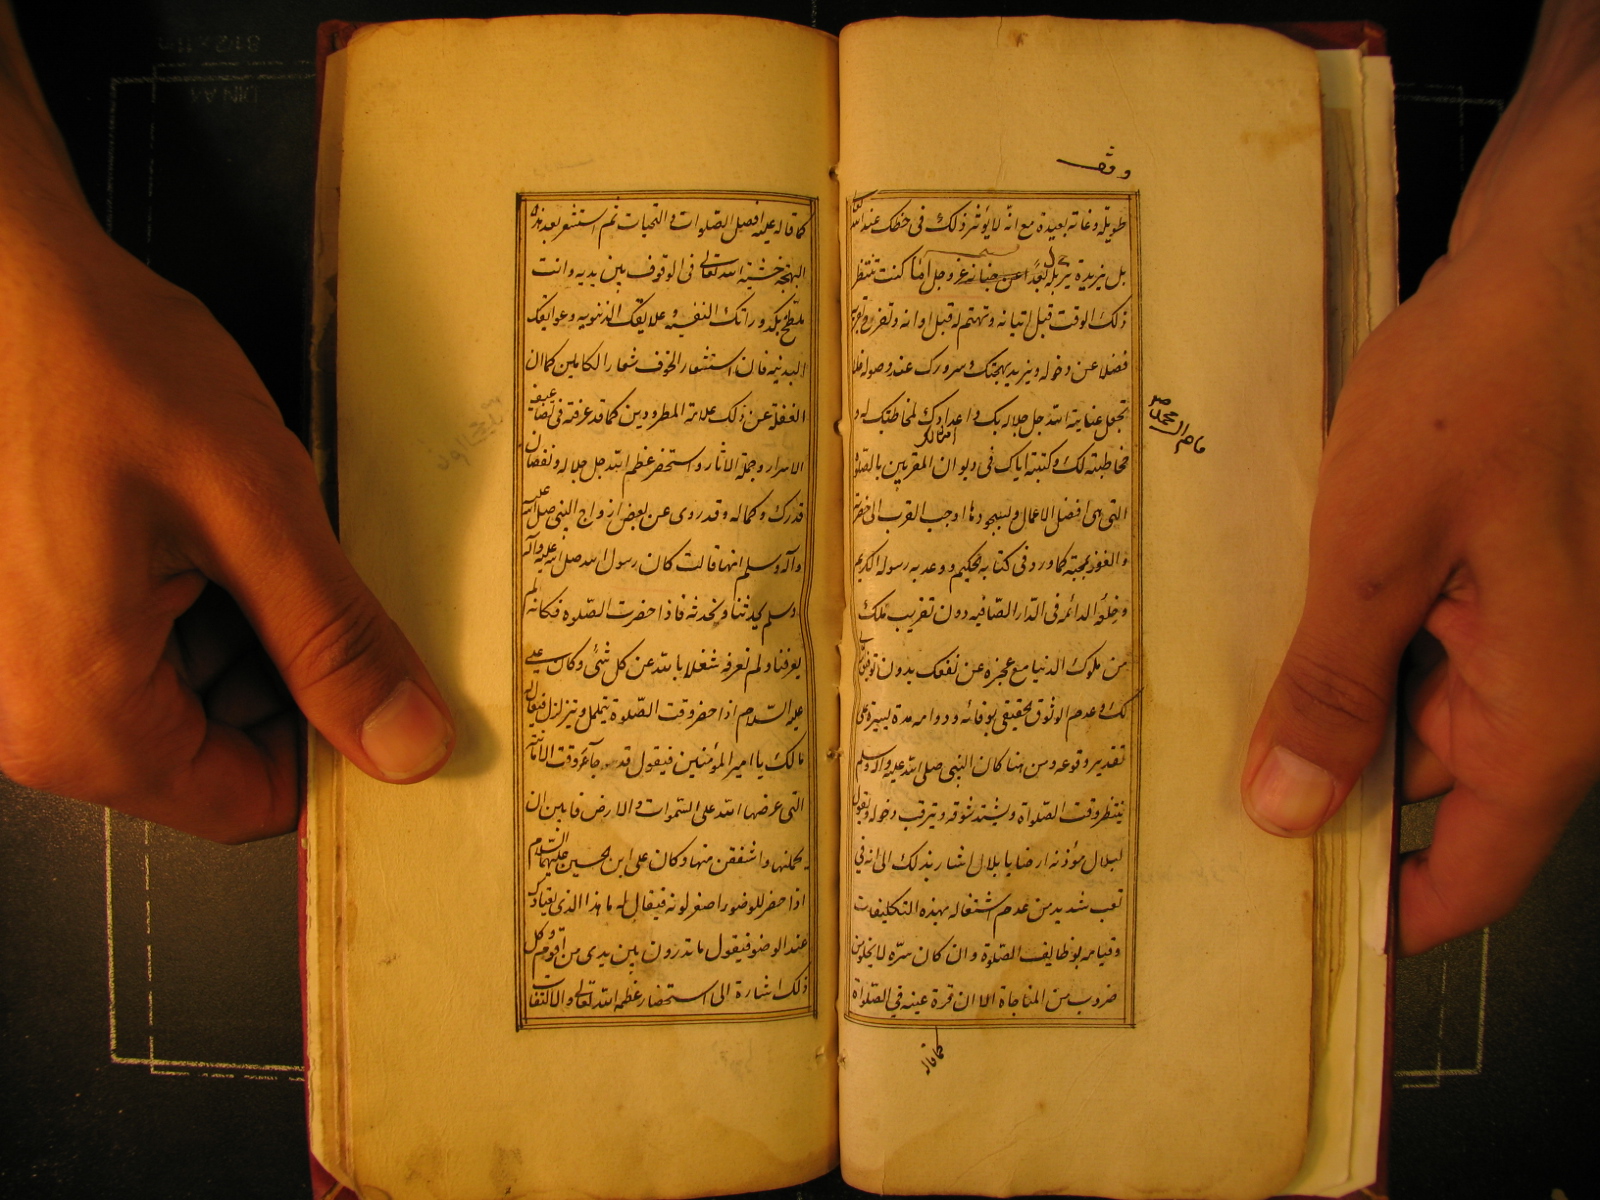 وقف
طويلة وغاية بعيدة مع انه لا يؤثر ذلك فى حظك عند الله
بل يزيدة يزيدك بعدًا عن جنابه عز وجل امّا كنت تنتظر
ذلك الوقت قبل اتيانه وتهتم له قبل اوانه وتفرح
فضلا عن دخوله ويزيد بهجتك وسرورك عند وصوله
تجعل عناية الله جل جلاله بك واعدادك لمخاطبتك له و
مخاطبته لك وكتبته اياك فى ديوان المقربين بالصلوة
التى هى افضل الاعمال وبسجودها اوجب القرب الى حضرته
والفوز بمحبته كما ورد فى كتابه الحكيم ووعد به رسوله الكريم
وخلعه الدائمه فى الدار الصافيه دون تقريب ملك
من ملوك الدنيا مع عجزه عن نفعك بدون توفيق الله
لك وعدم الوثوق الحقيقى بوفائه ودوامه مدة يسيرة على
تقدير وقوعه ومن هنا كان النبى صلى الله عليه واله وسلم
ينتظر وقت الصلواة ويشتد شوقه ويترقب دخوله ويقول
لبلال مؤذنه ارحنا يا بلال اشار بذلك الى انه فى
تعب شديد من عدم اشتغاله بهذه التكليفات
وقيامه بوظايف الصلوة وان كان سرّه لا يخلو من
ضروب من المناجاة الا ان قرة عينه في الصلواة
كما قاله
كما قاله عليه افضل الصلوات والتحيات ثم استشعر بعد هذه
البهجة خشية الله تعالى فى الوقوف بين يديه وانت
ملطخ بكدوراتك النفسيه وعلايقك الدنيويه وعوايقك
البدنيه فان استشعار الخوف شعار الكاملين كما ان
الغفلة عن ذلك علامة المطرودين كما قد عرفته فى تضاعيف
الاسرار وجملة الاثار واستحضر عظم الله جل جلاله ونقصان
قدرك وكماله وقد روى عن بعض ازواج النبى صلى الله عليه
وآله وسلم انها قالت كان رسول الله صلى الله عليه وآله
وسلم يحدثنا ونحدثه فاذا حضرت الصلوة فكانه لم
يعرفنا ولم نعرفه شغلا بالله عن كل شئ وكان على
عليه السلام اذا حضر وقت الصلوة يتململ ويتزلزل فيقال له
مالك يا امير المؤمنين فيقول قد جآء وقت الامانة
التى عرضها الله على السموات والارض فابين ان
يحملنها واشفقن منها وكان على ابن الحسين عليهما السلام
اذا حضر للوضوء اصفر لونه فيقال له ما هذا الذى يعتادك
عند الوضو فيقول ما تدرون بين يدى من اقوم وكل
ذلك اشارة الى استحضار عظمة الله تعالى والالتفات